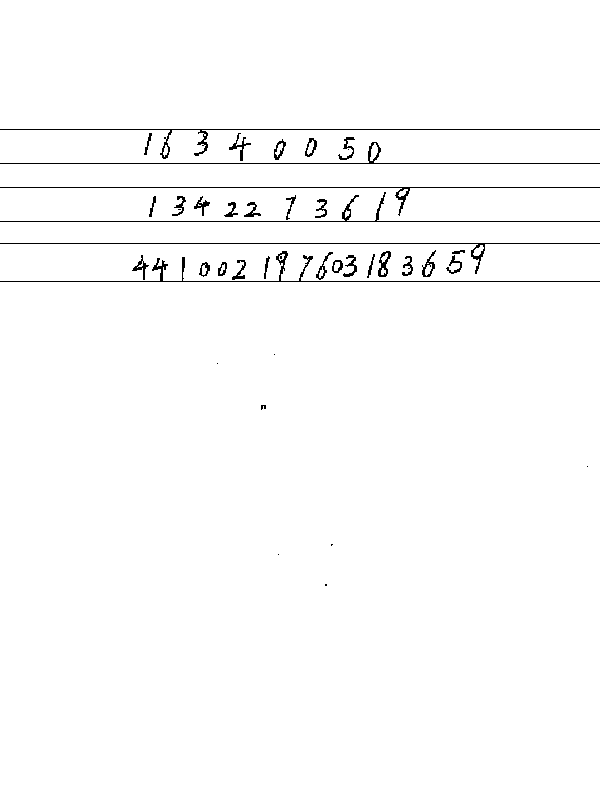 16340050
1342273619
441002197603183659